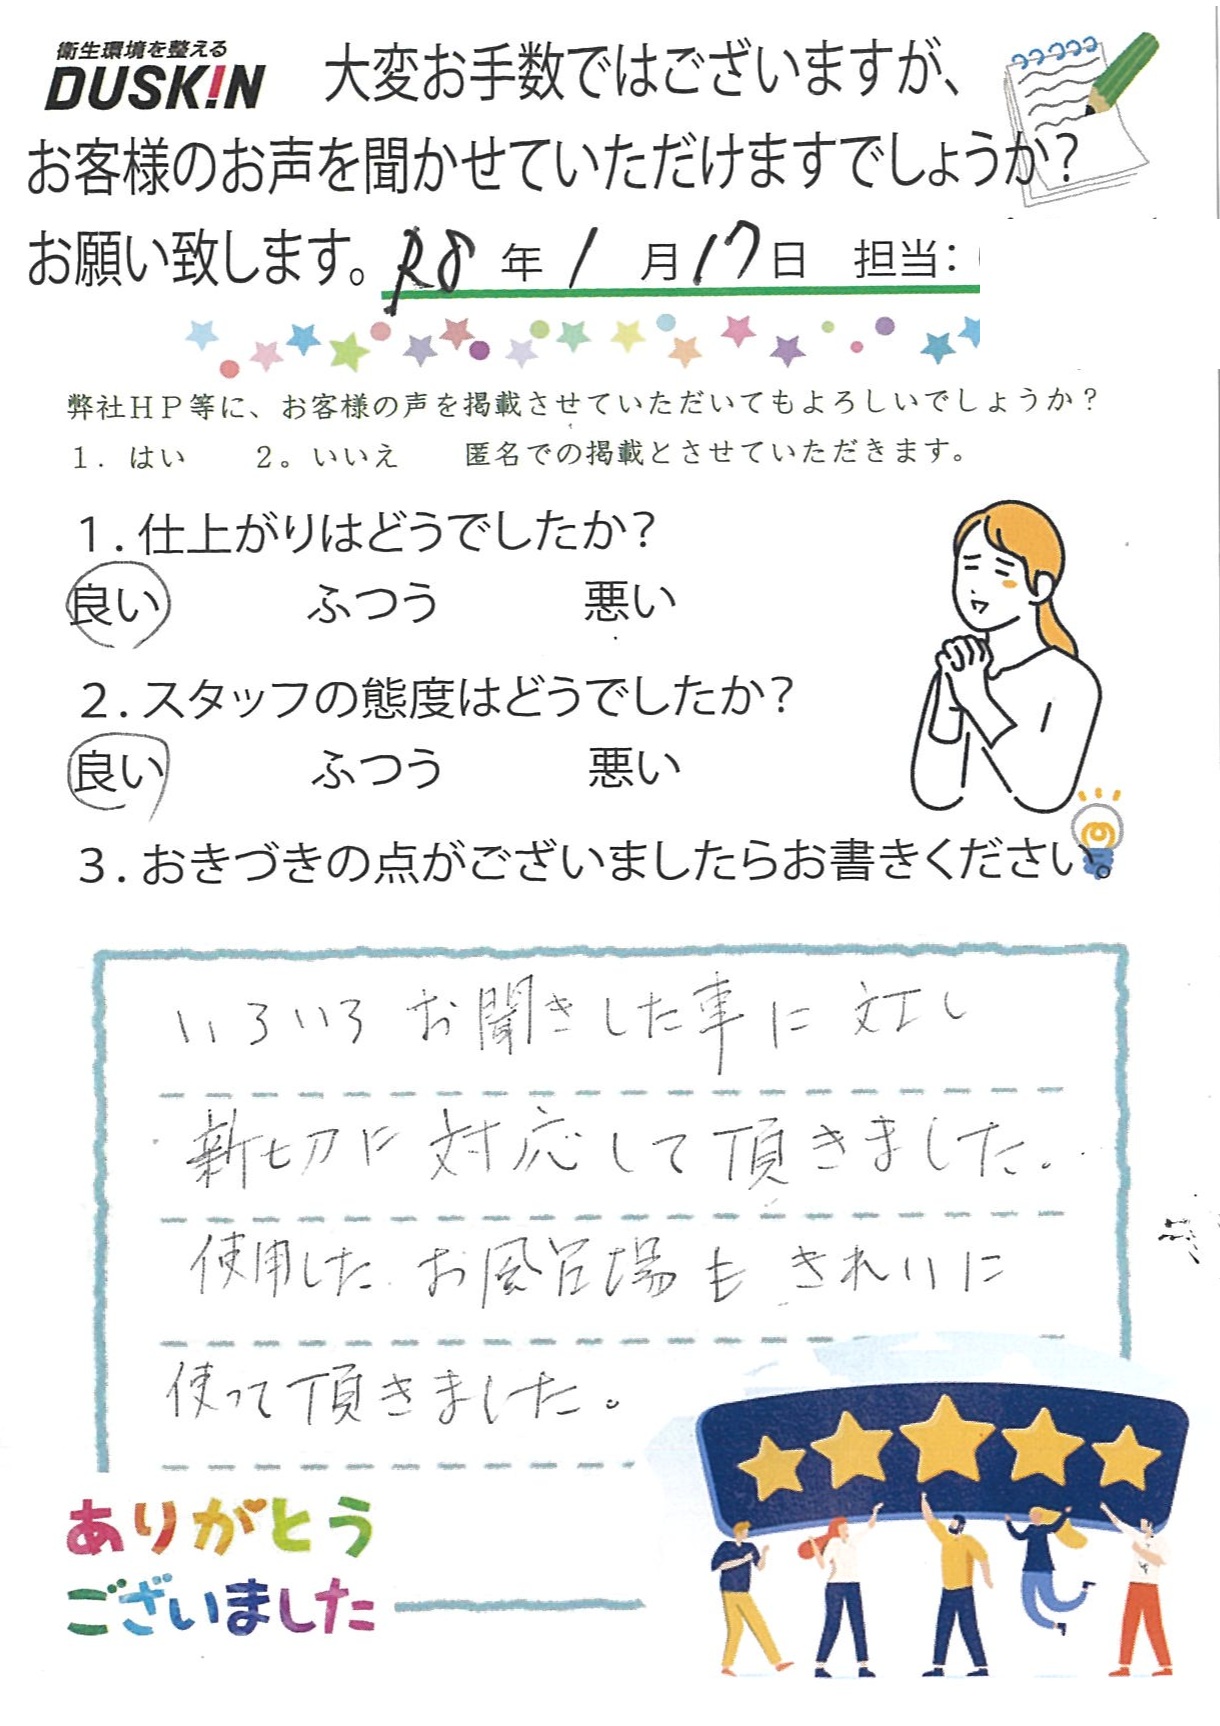 衛生環境を整える
DUSKIN
大変お手数ではございますが、
お客様のお声を聞かせていただけますでしょうか?
お願い致します。 R8 年 1 月 17 日 担当:
弊社HP等に、お客様の声を掲載させていただいてもよろしいでしょうか?
1. はい 2。いいえ 匿名での掲載とさせていただきます。
1. 仕上がりはどうでしたか?
良い ふつう 悪い
2. スタッフの態度はどうでしたか?
良い ふつう 悪い
3. おきづきの点がございましたらお書きください。
いろいろ お聞きした事に 対し
親切に 対応して頂きました。
使用した お風呂場も きれいに
使って頂きました。
ありがとう
ございました